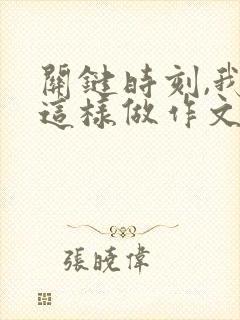 關鍵時刻,我
這樣做作文
張曉偉